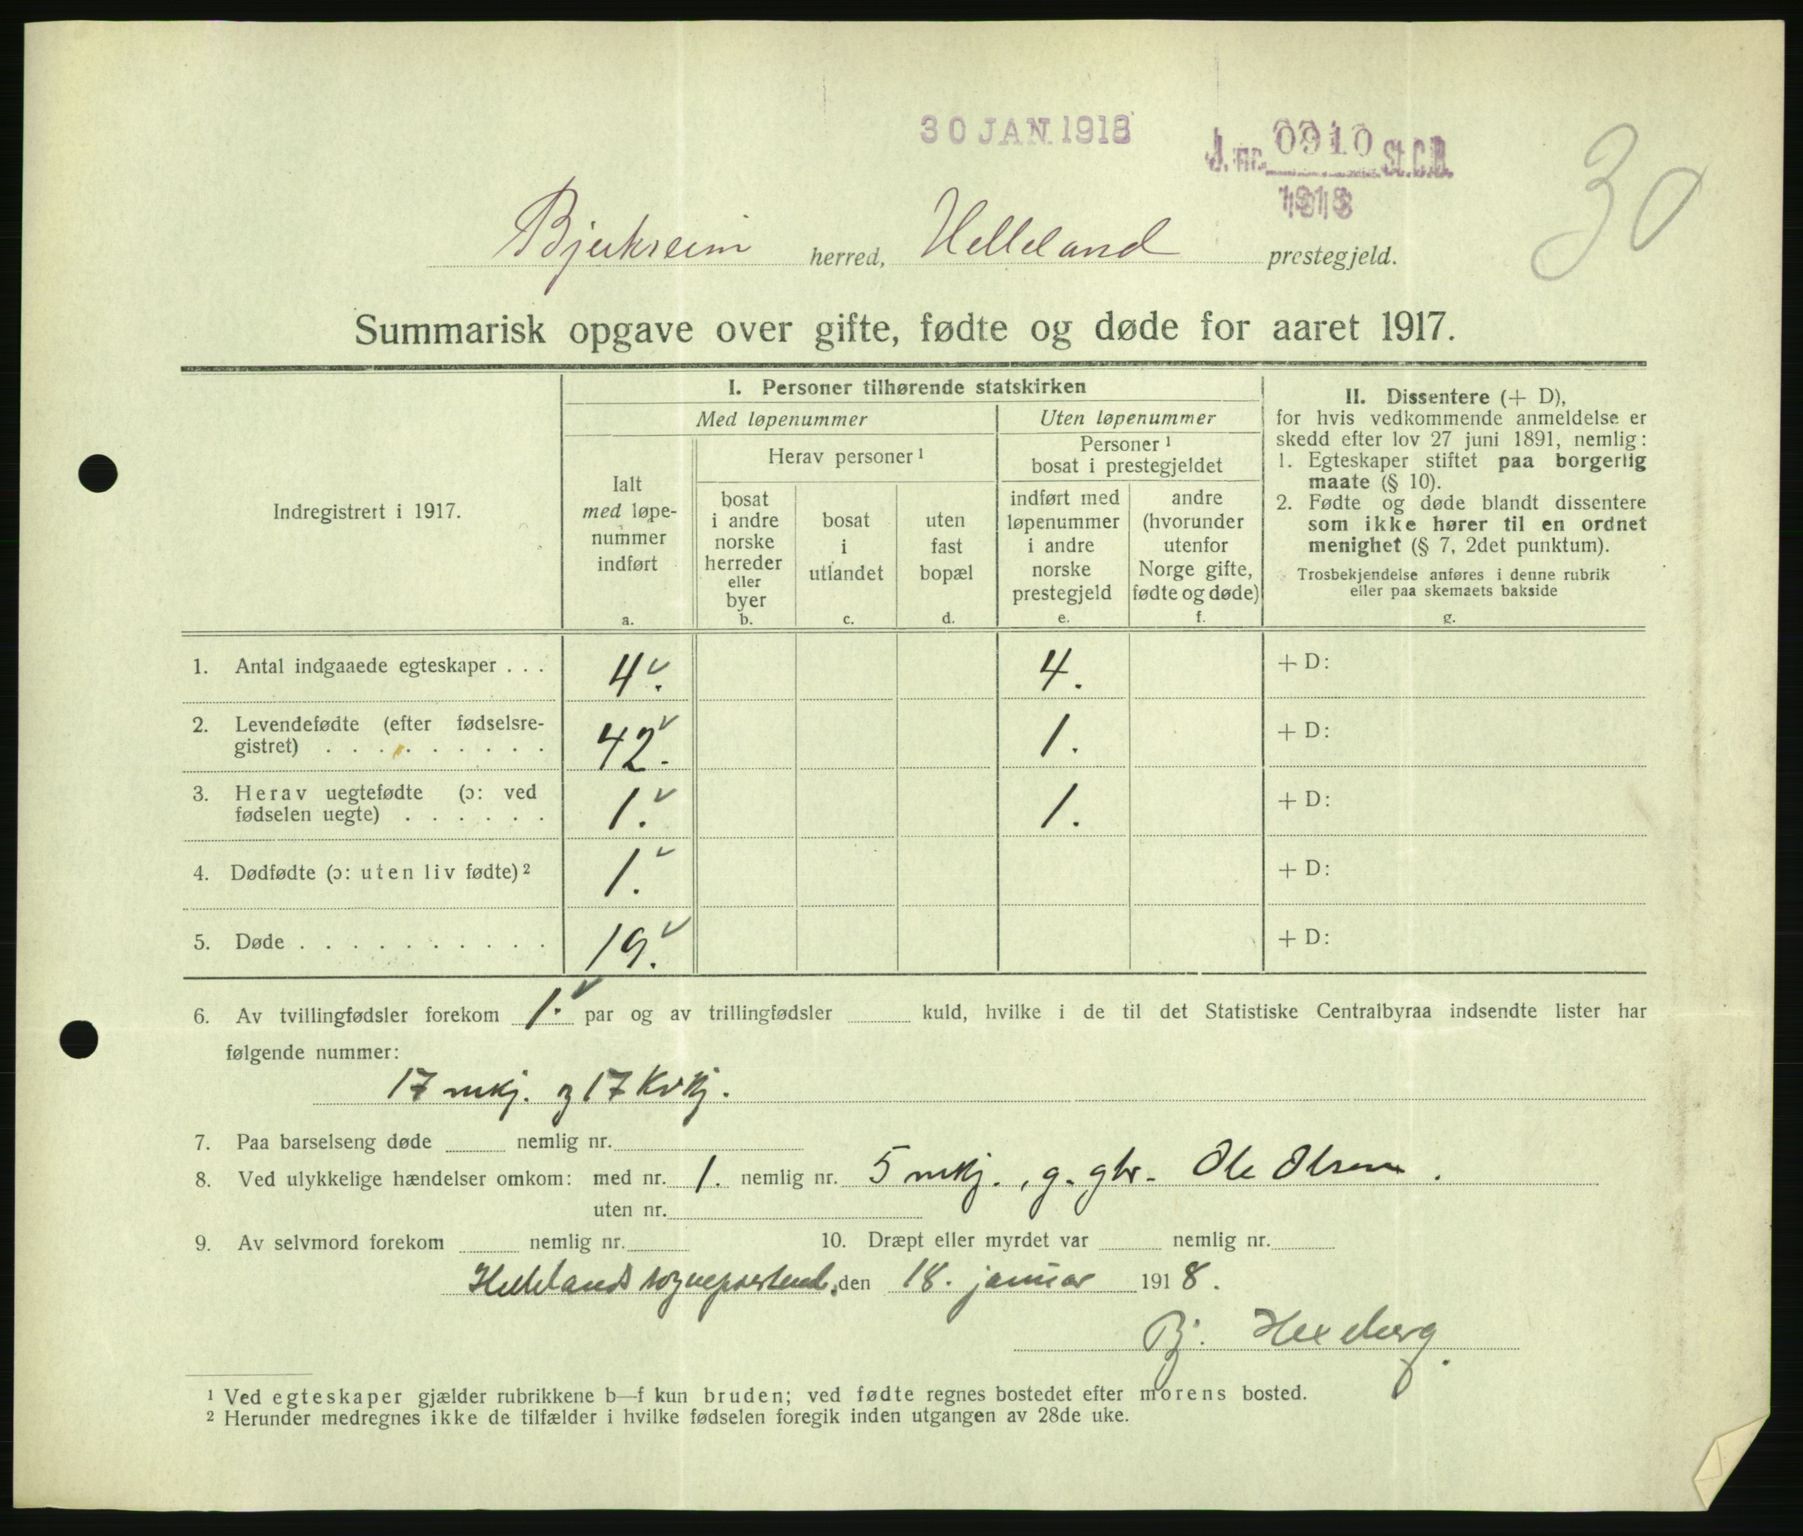 30 JAN. 1918
J. nr. 0910 St.C.B.
1918
30
Bjerkreim herred, Helleland prestegjeld.
Summarisk opgave over gifte, fødte og døde for aaret 1917.
Indregistrert i 1917.
I. Personer tilhørende statskirken
Med løpenummer
Uten løpenummer
Ialt
med løpe-
nummer
indført
a.
Herav personer ¹
bosat
i andre
norske
herreder
eller
byer
b.
bosat
i
utlandet
c.
uten
fast
bopæl
d.
Personer ¹
bosat i prestegjeldet
indført med
løpenummer
i andre
norske
prestegjeld
e.
andre
(hvorunder
utenfor
Norge gifte,
fødte og døde)
f.
II. Dissentere (+ D),
for hvis vedkommende anmeldelse er
skedd efter lov 27 juni 1891, nemlig:
1. Egteskaper stiftet paa borgerlig
maate (§ 10).
2. Fødte og døde blandt dissentere
som ikke hører til en ordnet
menighet (§ 7, 2det punktum).
Trosbekjendelse anføres i denne rubrik
eller paa skemaets bakside
g.
1. Antal indgaaede egteskaper . . . 4. 4. + D:
2. Levendefødte (efter fødselsre-
gistret) . . . . . . . . . 42. 1. + D:
3. Herav uegtefødte (ɔ: ved
fødselen uegte) . . . . . . 1. 1. + D:
4. Dødfødte (ɔ: uten liv fødte) ² 1. + D:
5. Døde . . . . . . . . . . 19. + D:
6. Av tvillingfødsler forekom 1. par og av trillingfødsler kuld, hvilke i de til det Statistiske Centralbyraa indsendte lister har
følgende nummer:
17 mkj. og 17 Kvkj.
7. Paa barselseng døde nemlig nr.
8. Ved ulykkelige hændelser omkom: med nr. 1. nemlig nr. 5 mkj., g. gbr. Ole Olsen.
uten nr.
9. Av selvmord forekom nemlig nr. 10. Dræpt eller myrdet var nemlig nr.
Hellelands sogneprestemb. den 18. januar 1918.
Bj.
¹ Ved egteskaper gjælder rubrikkene b—f kun bruden; ved fødte regnes bostedet efter morens bosted.
² Herunder medregnes ikke de tilfælder i hvilke fødselen foregik inden utgangen av 28de uke.